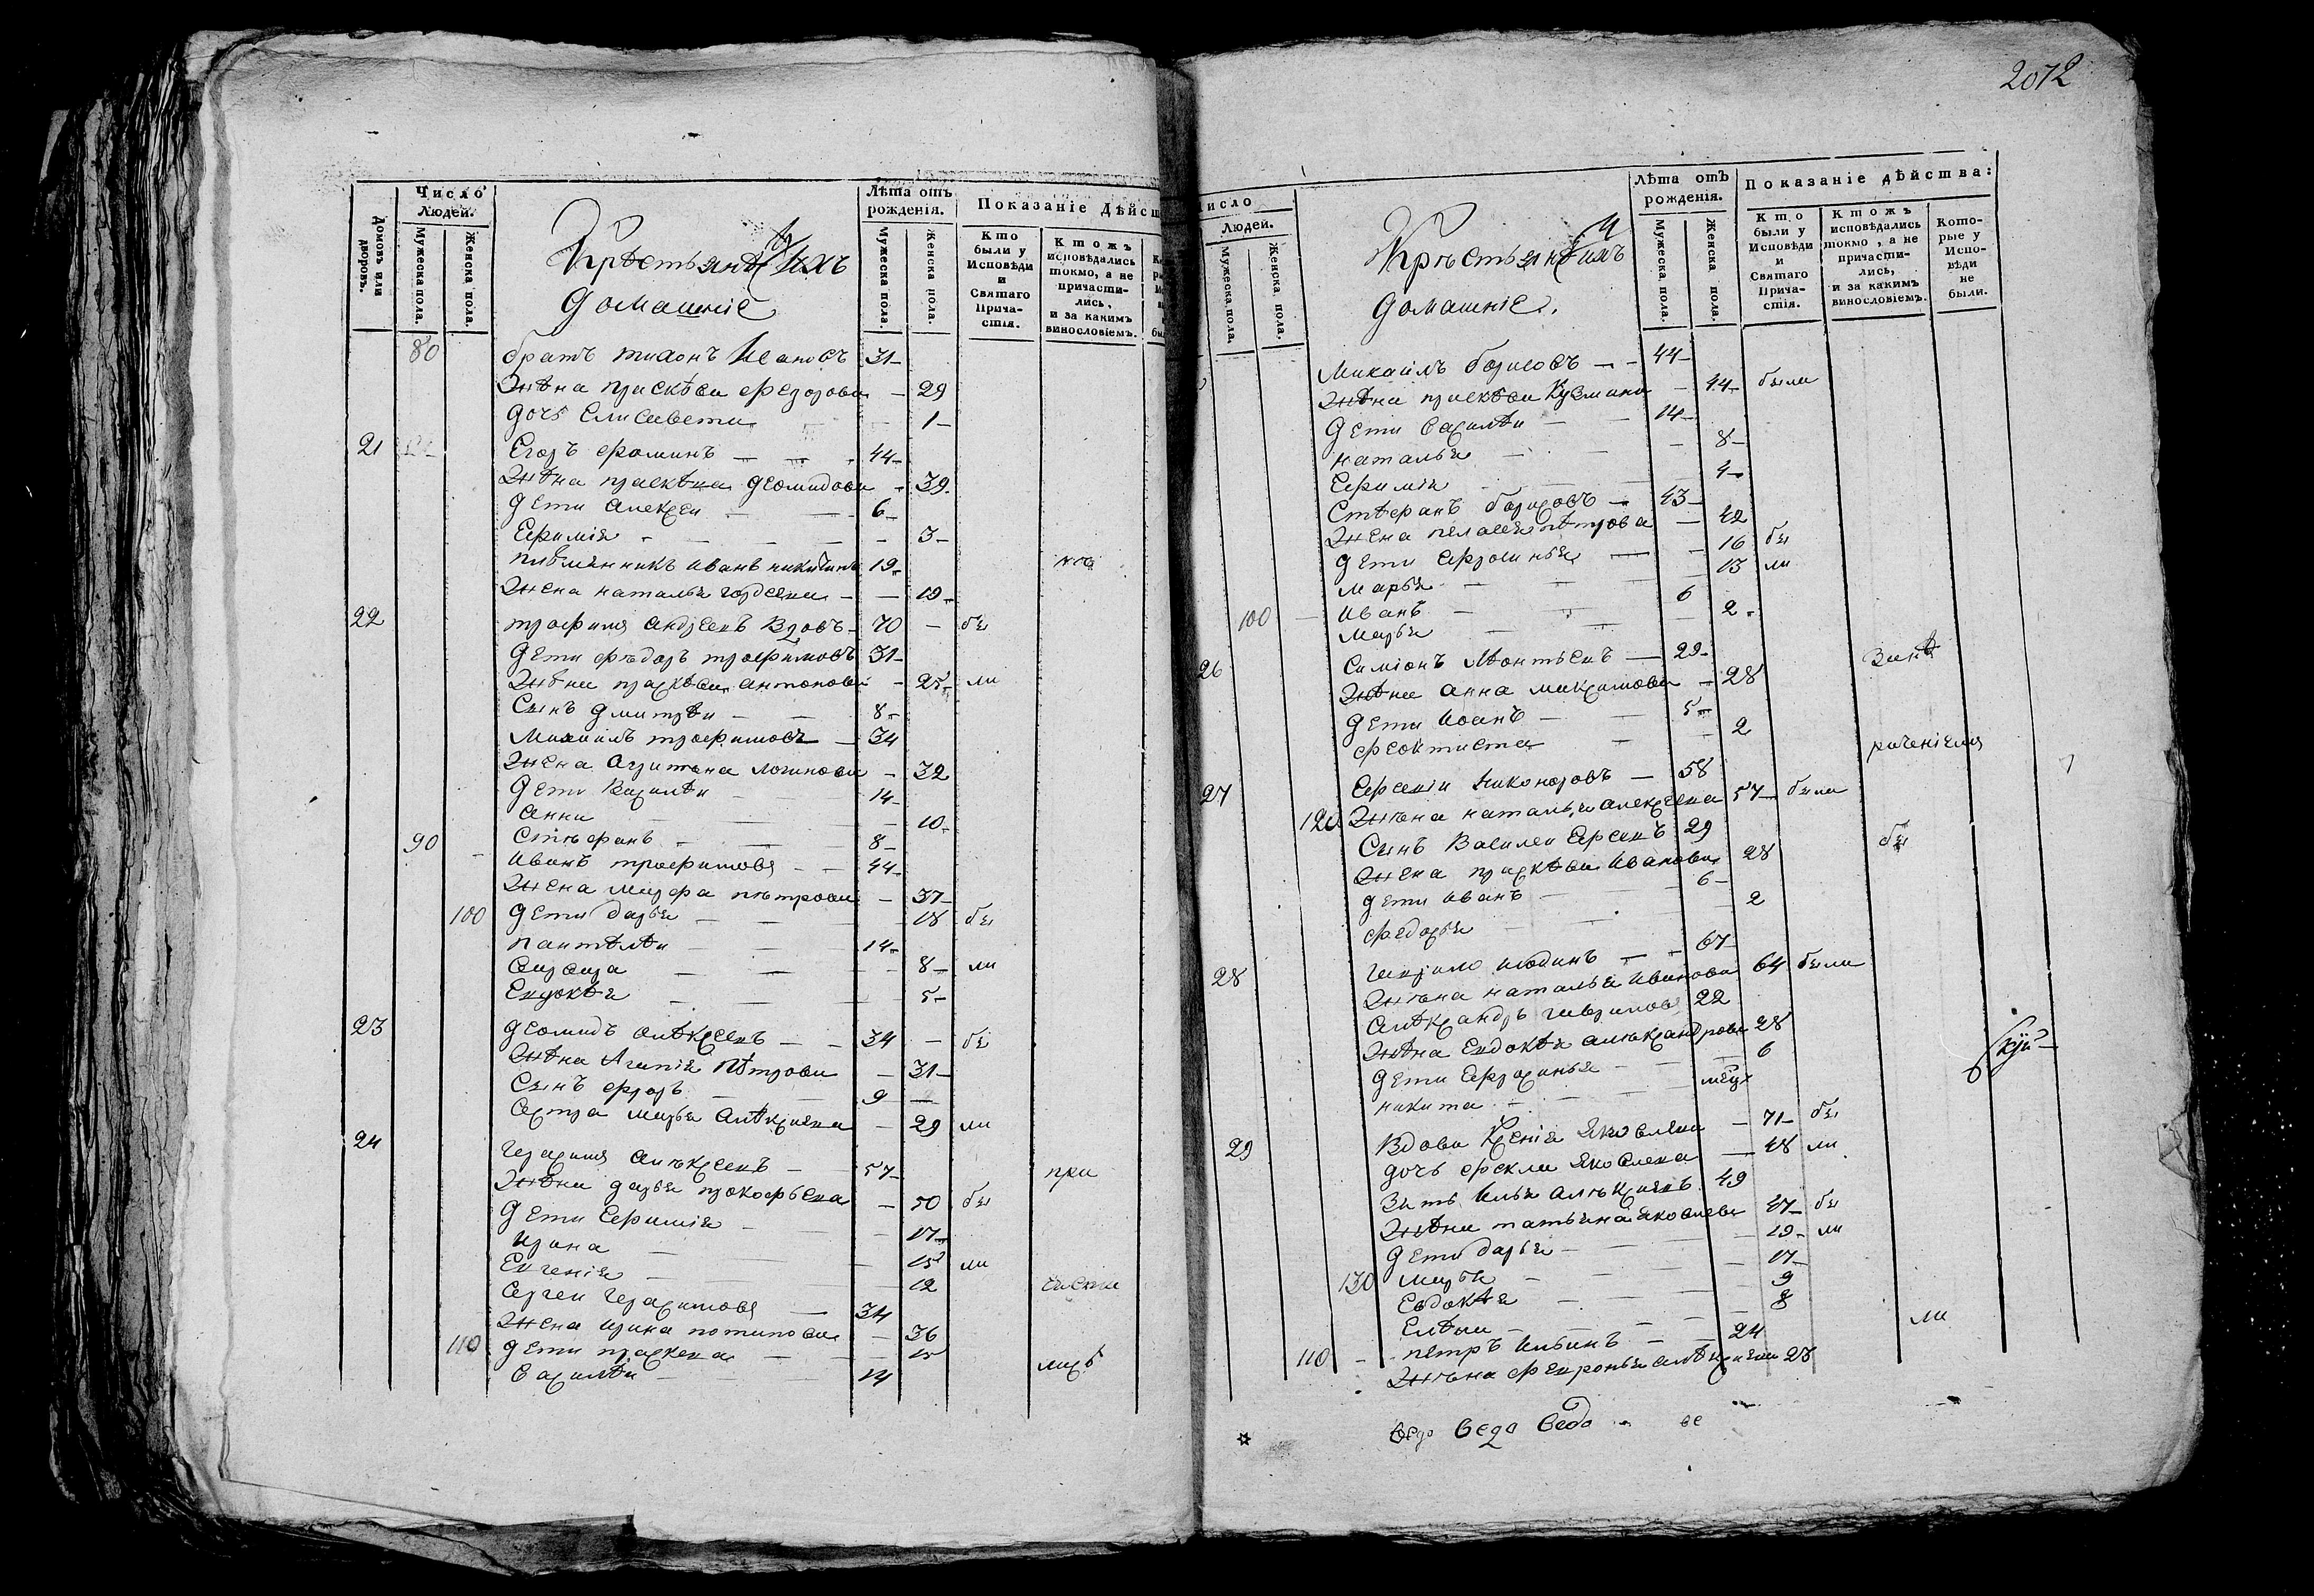 Домовъ или дворовъ.
Число Людей.
Мужеска пола.
Женска пола.
Крѣстьянѣ и ихъ
домашніе
Лѣта отъ рожденія.
Мужеска пола.
Женска пола.
Показаніе Дѣйс
Кто были у Исповѣди и Святаго Прича-стія.
Ктожъ исповѣдались токмо, а не причасти-лись, и за какимъ винословіемъ.
80 братъ тихонъ Ивановъ 31
жѣна прасковѣа федорова 29
дочь Елисавета 1
21 Егоръ фоминъ 44
жѣна прасковѣа деомидова 39
дети алексеи 6
Ефимія 3
племянникъ иванъ никитинъ 19
жена наталья гордеева 19
22 трофимъ андреевъ вдовъ 70 бы
дети фѣдоръ трофимовъ 31
жѣна прасковѣа антонова 25 ли
Сынъ дмитрѣи 8
Михаилъ трофимовъ 34
жена агрипена логинова 32
дети Василѣи 14
анна 10
90 Стѣфанъ 8
иванъ трофимовъ 44
жена марфа пѣтрова 37
100 дети дарья 18 бы
пантѣлѣи 14
8 ли
Евдокѣя 5
23 деомидъ алѣксеевъ 34 бы
жѣна Агапія пѣтрова 31
Сынъ фролъ 9
сестра марья алѣксиева 29 ли
24 герасимъ алѣксеевъ 57 при
жѣна дарья прокофьева 50 бы
дети Ефимія 17
ирина 15 ли
Евгенія 12
Сергеи герасимовъ 34
жена ирина потапова 36
110 дети прасковеа 15
василѣи 14
2072
исло
Людей.
Мужеска пола.
Женска пола.
Крѣстьянѣ и ихъ
домашніе.
Лѣта отъ рожденія.
Мужеска пола.
Женска пола.
Показаніе дѣйства:
Кто были у Исповѣди и Святаго Прича-стія.
Ктожъ исповѣдались токмо, а не причасти-лись, и за какимъ винословіемъ.
Кото-рые у Испо-вѣди не были.
Михаилъ борисовъ 44
жѣна прасковѣа Кузмина 44 были
дети василѣи 14
наталья 8
Ефимія 4
Стѣфанъ борисовъ 43
жена пелагея пѣтрова 42
дети ефросинья 16 бы
марья 13 ли
100 иванъ 6
марья 2
26 Симіонъ лѣонтьевъ 29
жѣна анна максимова 28
дети иванъ 5
феоктиста 2
рачениемъ
27 Евсевіи никоноровъ 58
120 жѣна наталья алексеева 57 были
Сынъ Василеи 29 бы
жена прасковѣа иванова 28
дети иванъ 6
федосья 2
28 67
жѣна наталья иванова 64 были
алѣксандръ 22
жѣна Евдокѣя алѣксандрова 28
дети ефросинья 6
никита
29 вдова Ксенія яковлева 71 бы
дочь фекла яковлева 48 ли
зять илья алѣксиевъ 49
жѣна татьяна яковлева 47 бы
дети дарья 19 ли
130 марья 17
Евдокѣя 9
Елѣна 8 ли
110 пѣтръ ильинъ 24
жѣна феврония алѣксиева 23
ведо ведо ведо ве